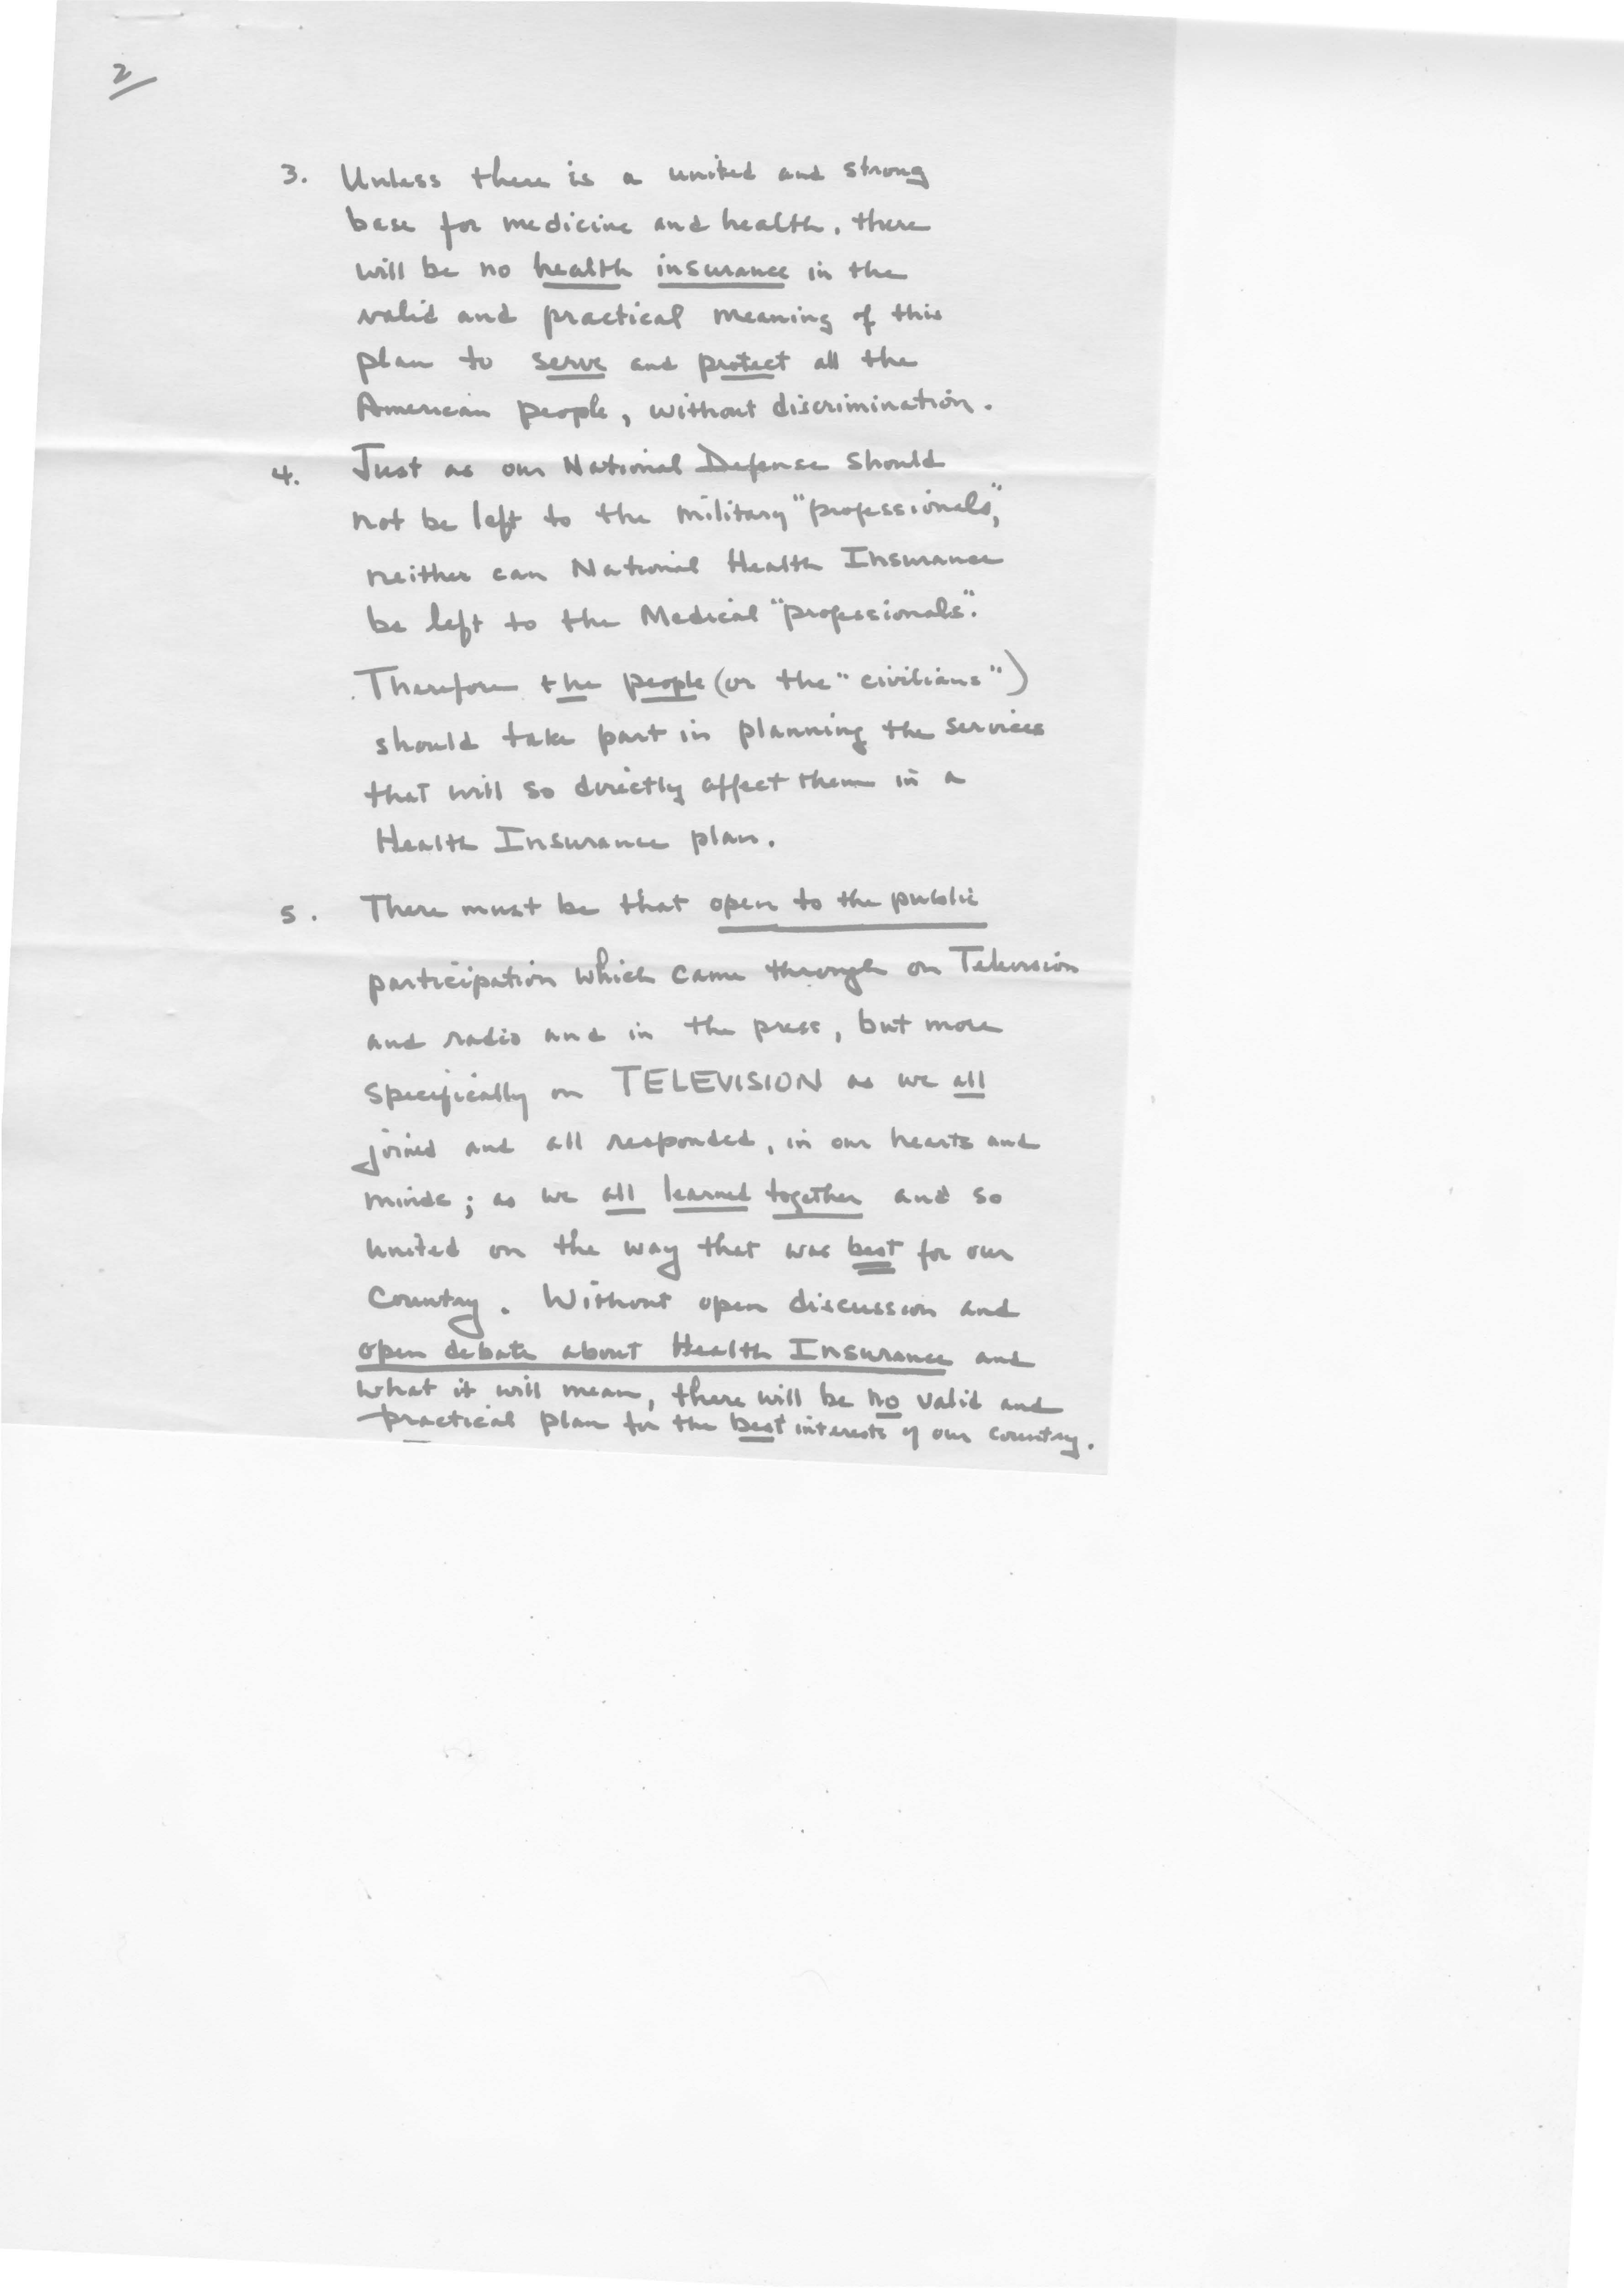 2
3. Unless there is a united and strong
base for medicine and health, there
will be no health insurance in the
valid and practical meaning of this
plan to serve and protect all the
American people, without discrimination.
4. Just as our National Defense should
not be left to the military "professionals,"
neither can National Health Insurance
be left to the Medical "professionals".
Therefore the people (or the "civilians")
should take part in planning the services
that will so directly affect them in a
Health Insurance plan.
5. There must be that open to the public
participation which came through on Television
and radio and in the press, but more
specifically on TELEVISION as we all
joined and all responded, in our hearts and
minds; as we all learned together and so
united on the way that was best for our
Country. Without open discussion and
open debate about Health Insurance and
what it will mean, there will be no valid and
practical plan for the best interests of our country.